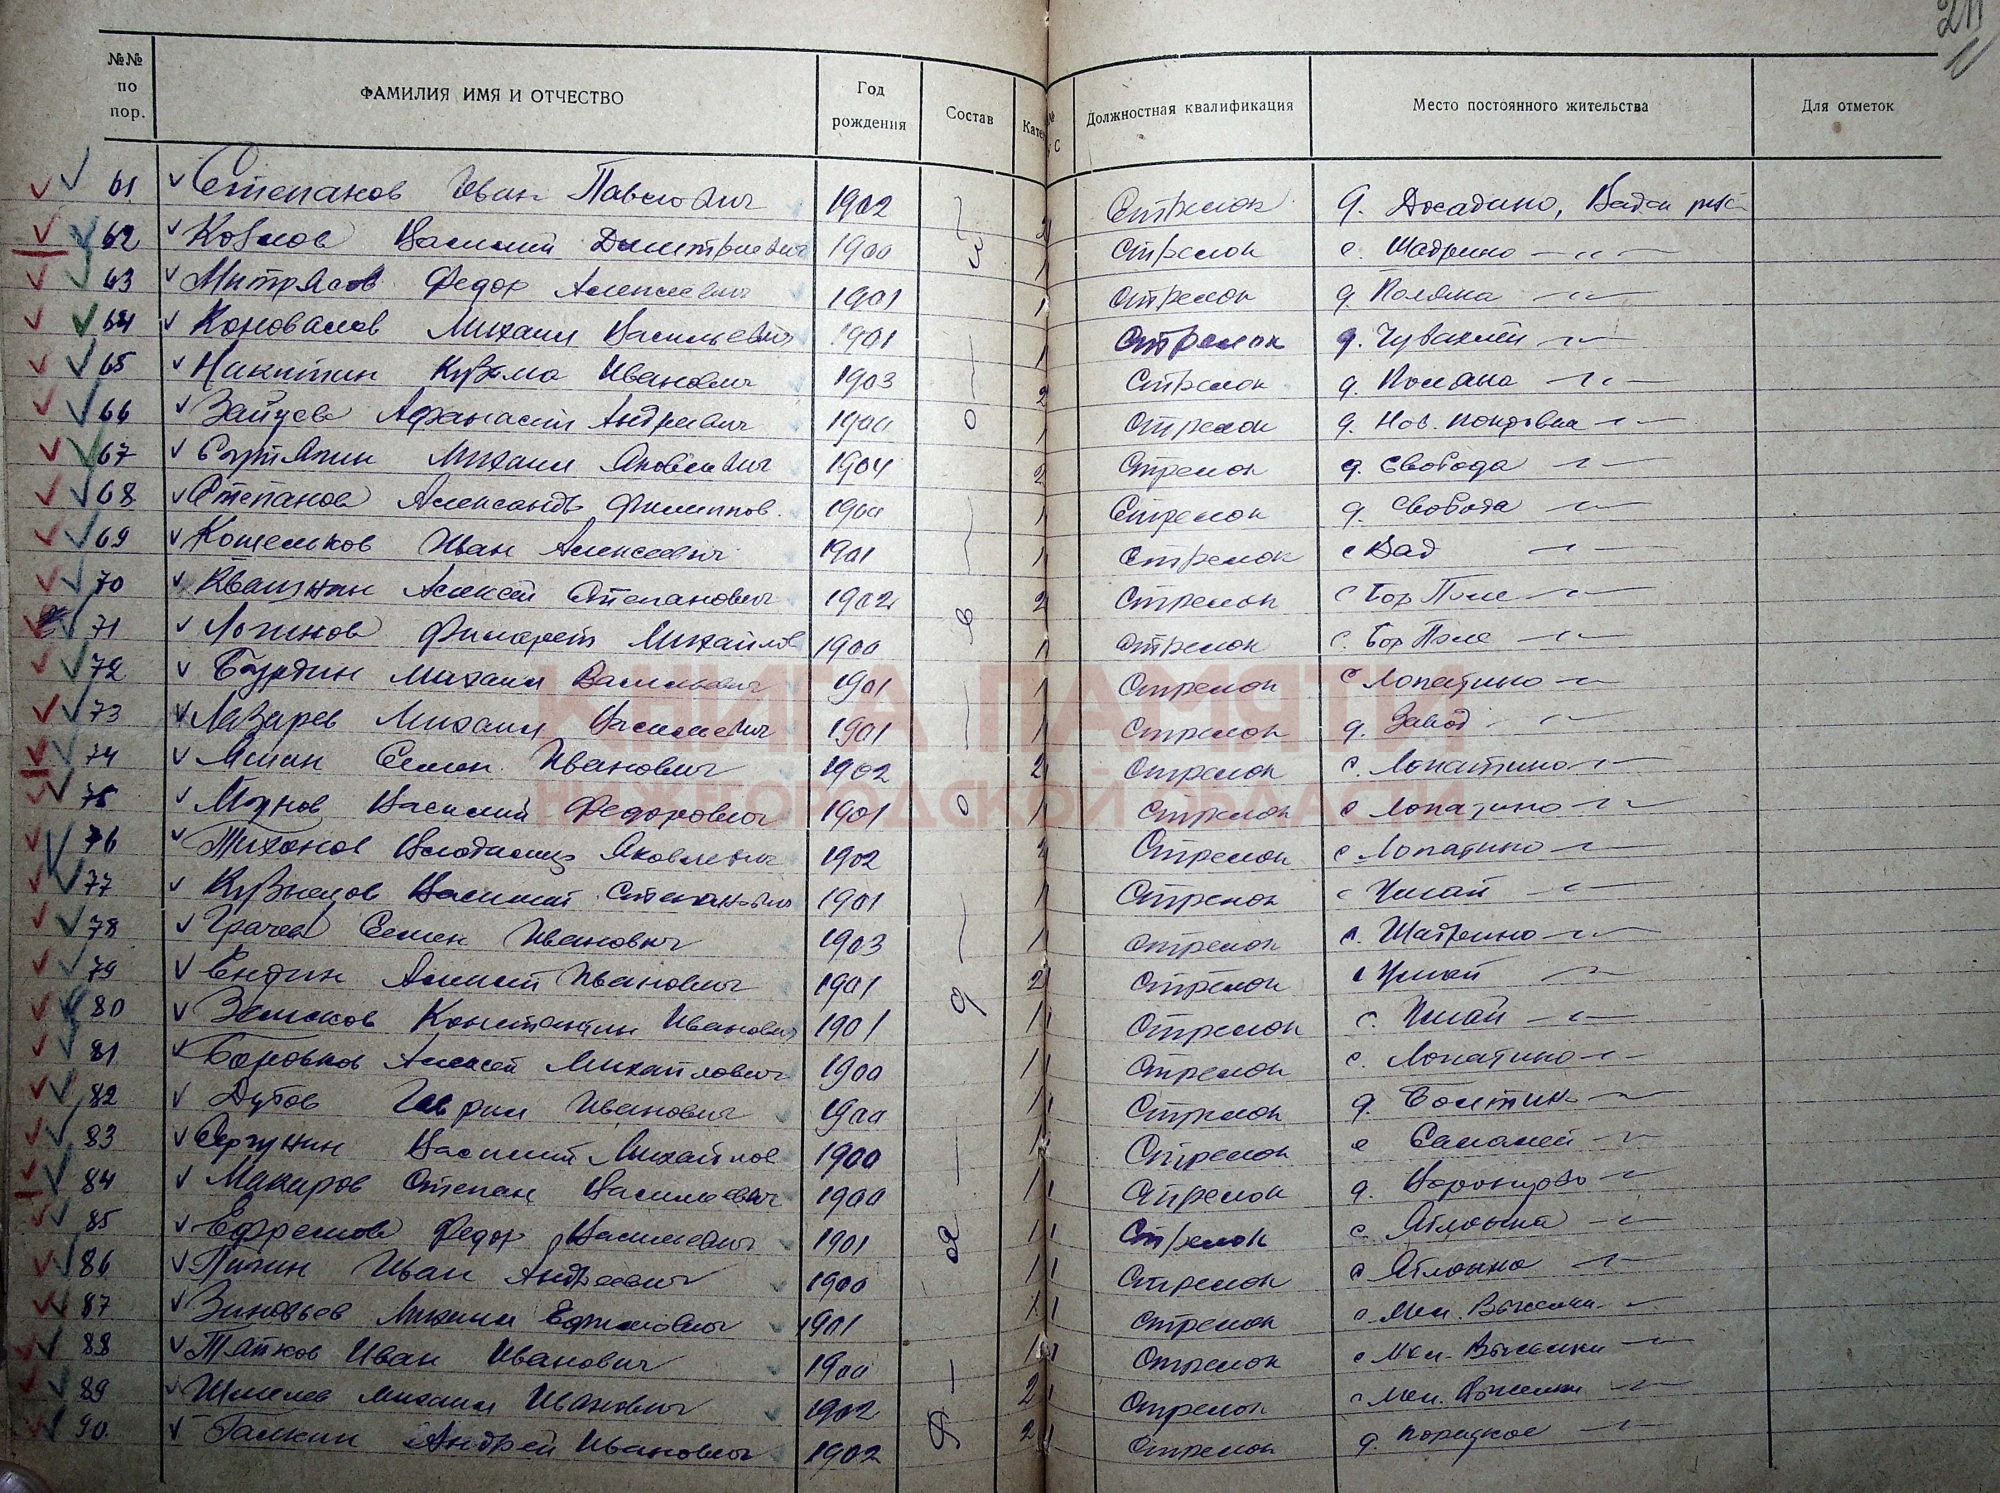 №№ по пор. ФАМИЛИЯ ИМЯ И ОТЧЕСТВО Год рождения Состав Кате № С Должностная квалификация Место постоянного жительства Для отметок
61 Степанов Иван Павлович 1902 Стрелок д. Досадино, Вадск
62 Козлов Василий Дмитриевич 1900 Стрелок с. Шадрино
63 Митрясов Федор Алексеевич 1901 1 Стрелок д. Поляна
64 Коновалов Михаил Васильевич 1901 1 Стрелок д. Чувахлей
65 Никитин Кузьма Иванович 1903 2 Стрелок д. Поляна
66 Зайцев Афанасий Андреевич 1900 1 Стрелок д. Нов. Покровка
67 Михаил Яковлевич 1904 2 Стрелок д. Свобода
68 Степанов Александр Филиппов. 1900 1 Стрелок д. Свобода
69 Кошельков Иван Алексеевич 1901 1 Стрелок с Вад
70 Квашнин Алексей Степанович 1902 2 Стрелок с Бор Поле
71 Логинов Филарет Михайлов 1900 1 Стрелок с. Бор Поле
72 Бурдин Михаил Васильевич 1901 1 Стрелок с Лопатино
73 Лазарев Михаил Васильевич 1901 1 Стрелок д. Завод
74 Семен Иванович 1902 2 Стрелок с. Лопатино
75 Василий Федорович 1901 1 Стрелок с Лопатино
76 Тихонов Владимир Яковлевич 1902 2 Стрелок с Лопатино
77 Кузнецов Василий Степанович 1901 1 Стрелок с
78 Грачев Семен Иванович 1903 1 Стрелок с. Шадрино
79 Ендин Алексей Иванович 1901 2 Стрелок с
80 Земсков Константин Иванович 1901 1 Стрелок с.
81 Боровков Алексей Михайлович 1900 1 Стрелок с. Лопатино
82 Дубов Гаврил Иванович 1900 1 Стрелок д.
83 Сергунин Василий Михайлов 1900 1 Стрелок с
84 Макаров Степан Васильевич 1900 1 Стрелок д. Воронцово
85 Ефремов Федор Васильевич 1901 1 Стрелок с. Яблонка
86 Иван Андреевич 1900 1 Стрелок с Яблонка
87 Зиновьев Михаил Ефимович 1901 1 Стрелок с
88 Иван Иванович 1900 1 Стрелок с
89 Шмелев Михаил Иванович 1902 2 Стрелок с
90 Галкин Андрей Иванович 1902 2 Стрелок д.
КНИГА ПАМЯТИ
НИЖЕГОРОДСКОЙ ОБЛАСТИ